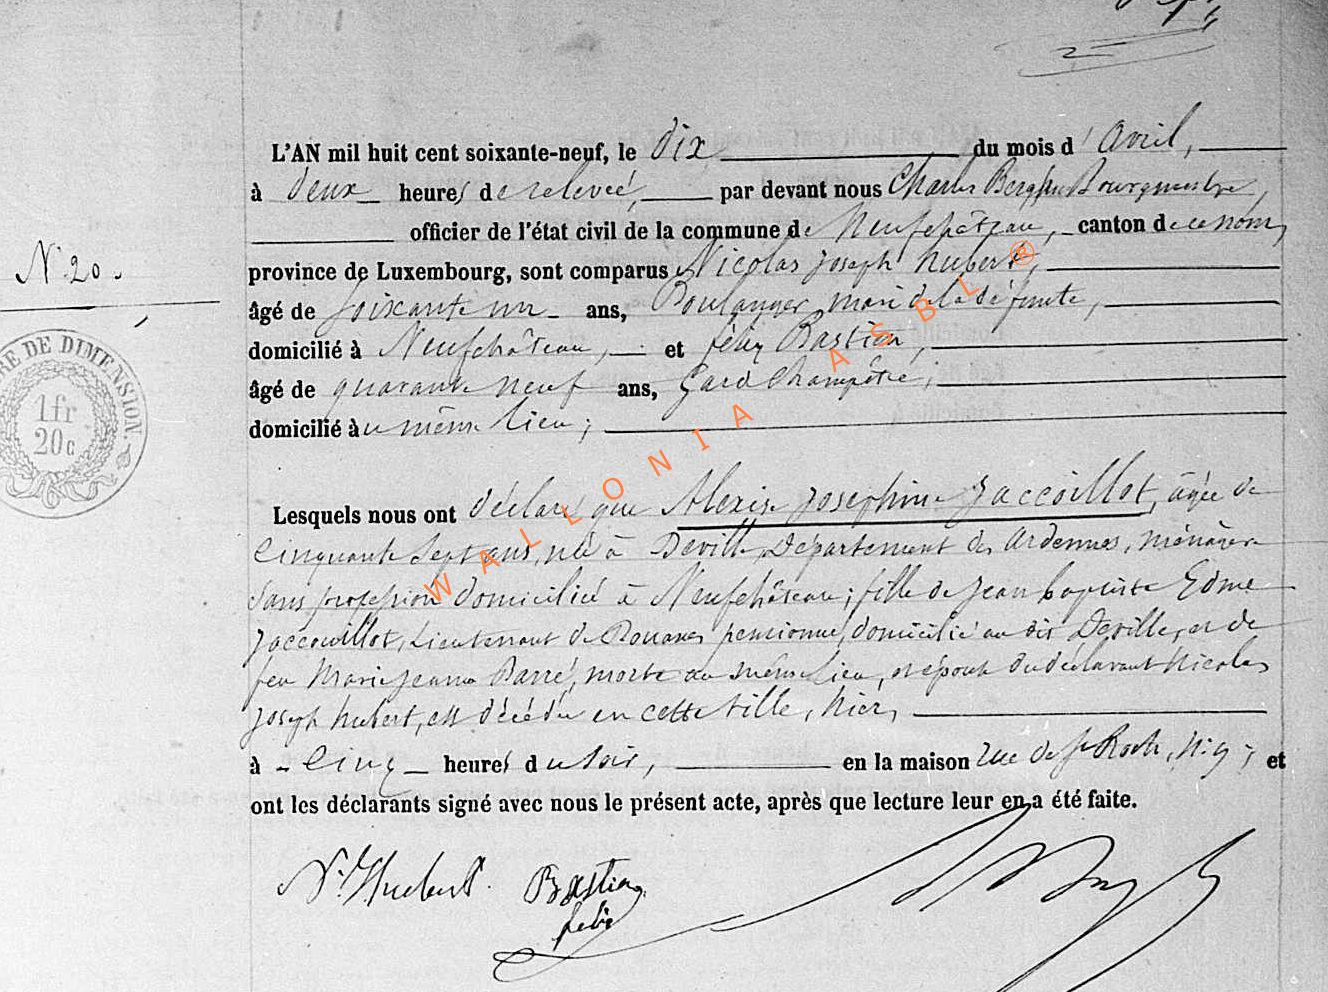 L'AN mil huit cent soixante-neuf, le dix du mois d'Avril,
à deux heures de relevée, par devant nous Charles Bergh Bourgmestre,
officier de l'état civil de la commune de Neufchâteau, canton de ce nom,
N. 20.
province de Luxembourg, sont comparus Nicolas Joseph Hubert,
âgé de soixante un ans, Boulanger, mari de la défunte,
domicilié à Neufchâteau, et félix Bastien,
âgé de quarante neuf ans, Gard Champêtre,
domicilié au même lieu;
TIMBRE DE DIMENSION.
1 fr
20 c
Lesquels nous ont déclaré que Alexise Josephine Jaccoillot, âgée de
Cinquante Sept ans, née à Deville, Département des Ardennes, ménagère
Sans profession domiciliée à Neufchâteau; fille de Jean baptiste Edme
Jaccouillot, Lieutenant de Douanes pensionné, domicilié au dit Deville, et de
feu Marie Jeanne Barré, morte au même lieu, et épouse du déclarant Nicolas
Joseph Hubert, est décédée en cette Ville, hier,
à cinq heures du soir, en la maison rue de St Roch, N. 9; et
ont les déclarants signé avec nous le présent acte, après que lecture leur en a été faite.
N. J. Hubert. Bastien
félix
WALLONIA ASBL ®